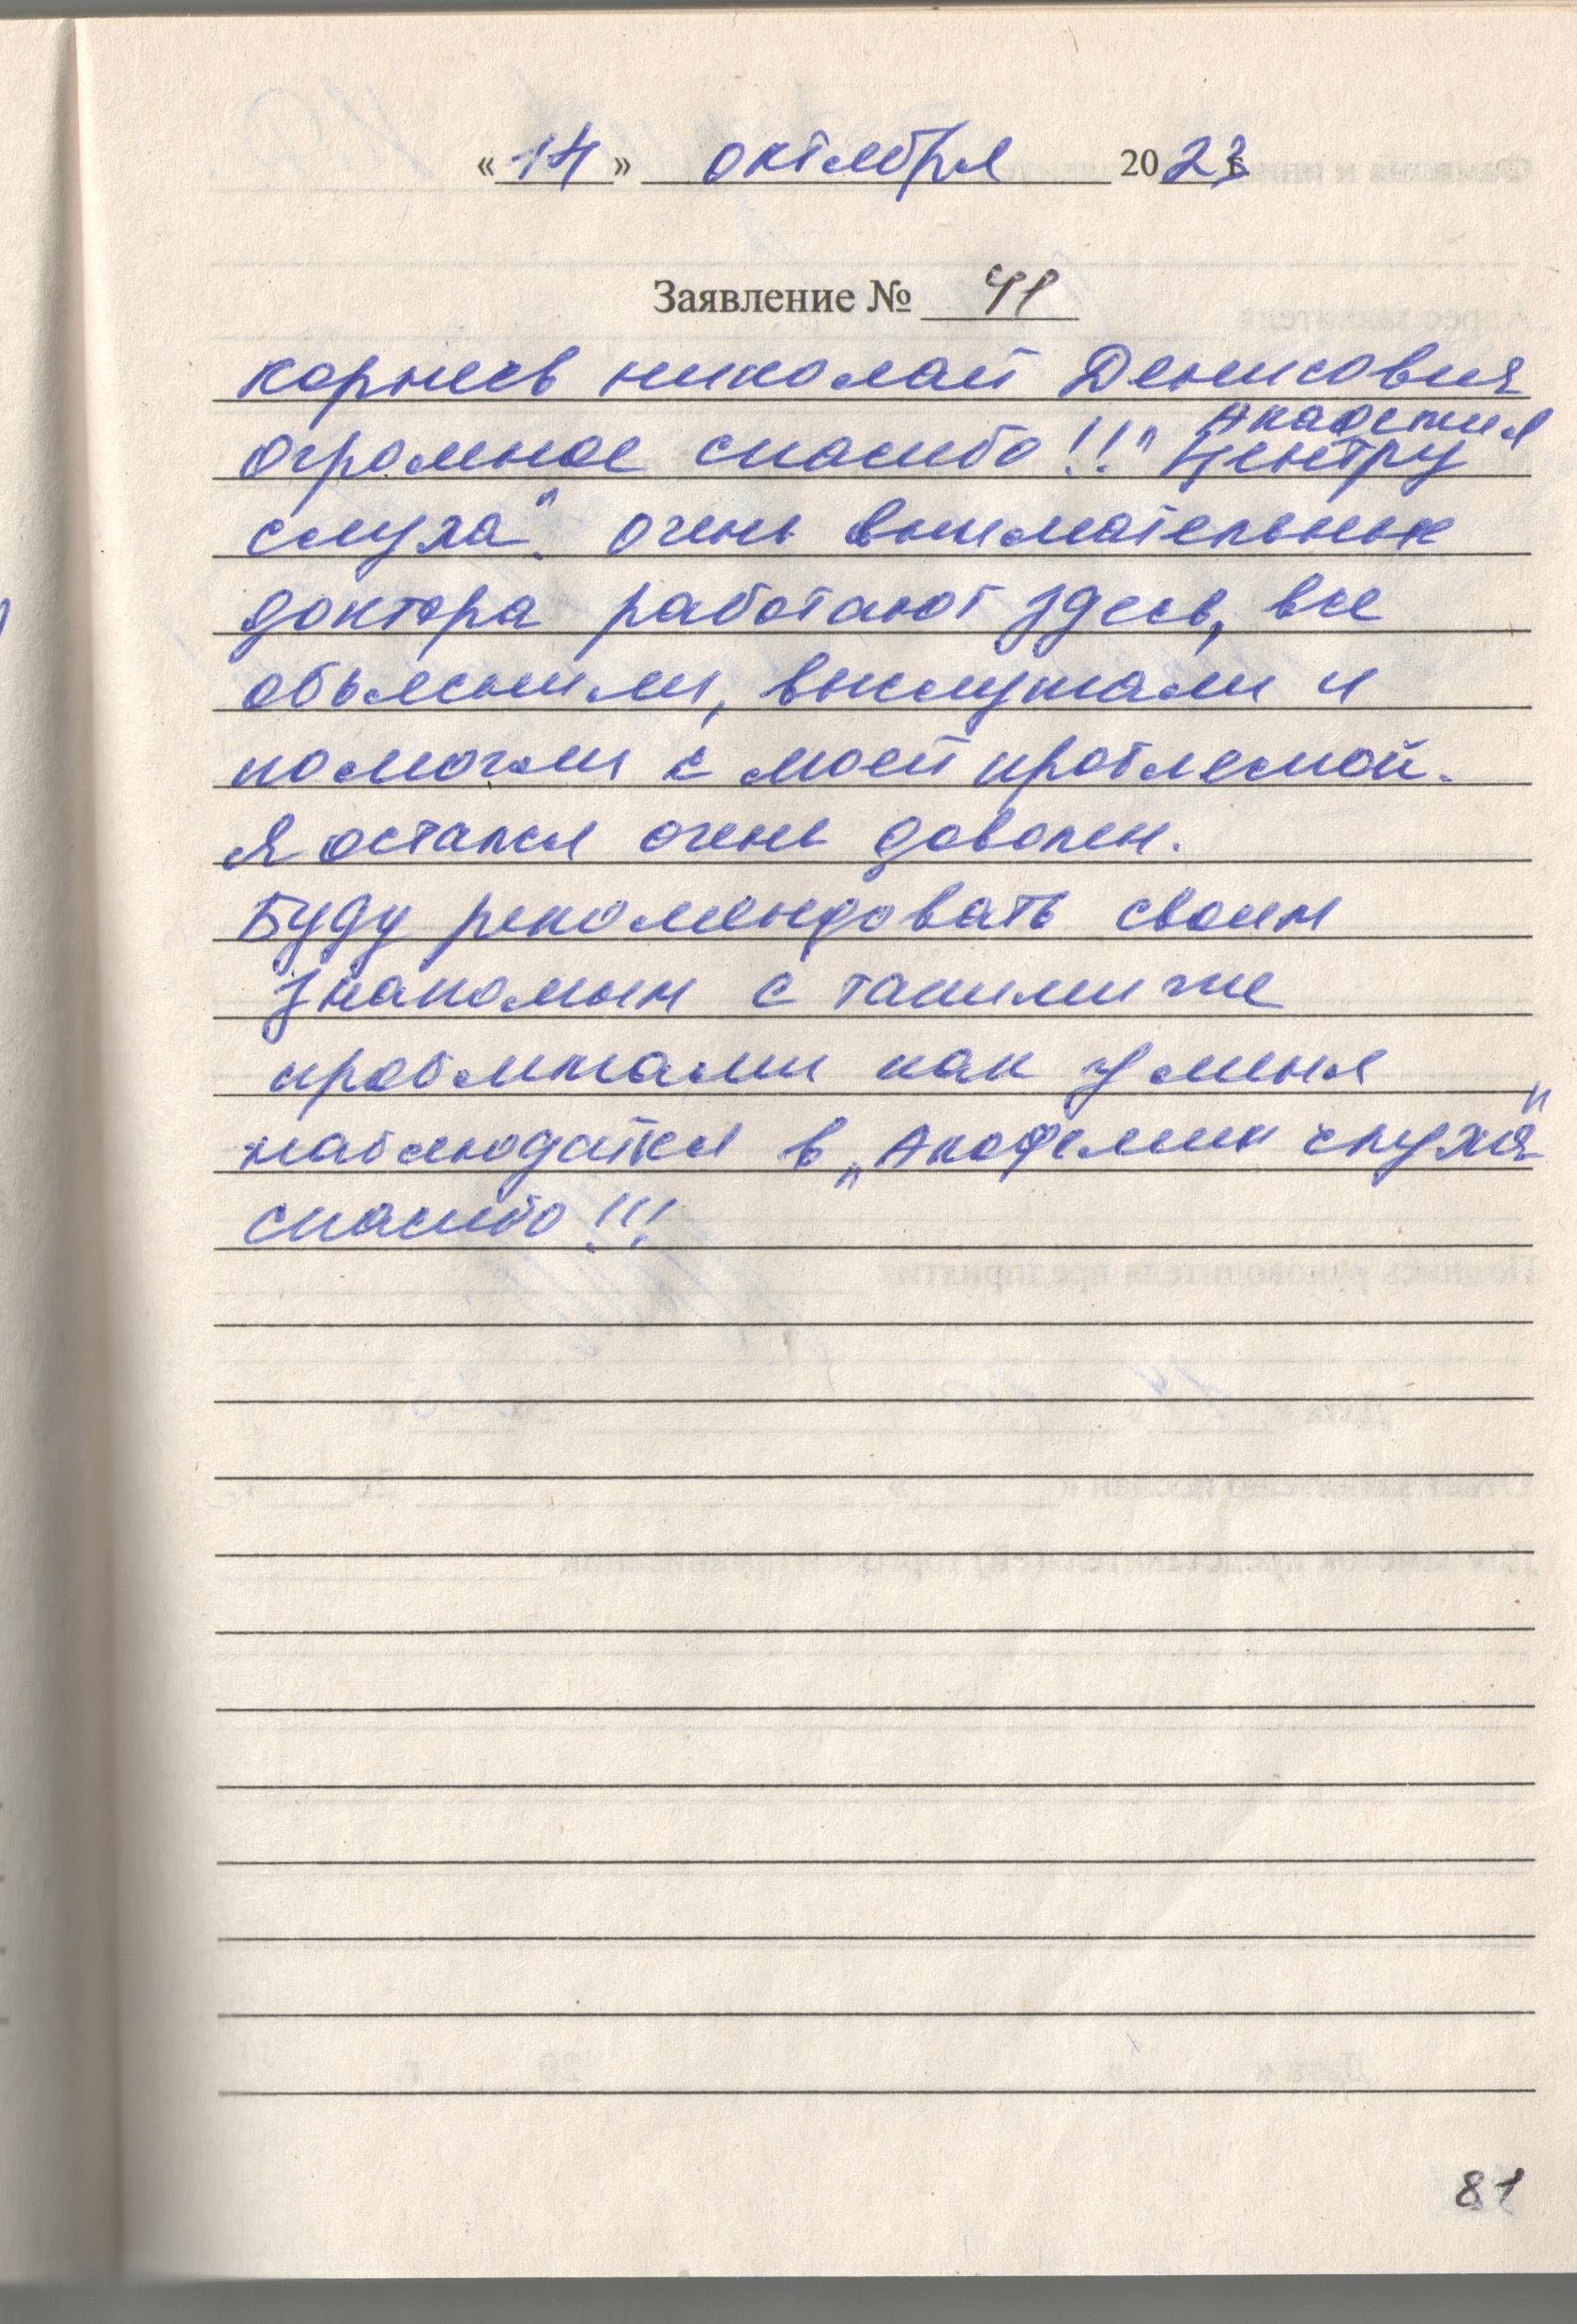 « 14 » октября 2023 г.
Заявление № 41
Корнеев Николай Денисович
Академия
огромное спасибо!!! "Центру
слуха". Очень внимательные
доктора работают здесь, все
объяснили, выслушали и
помогли с моей проблемой.
Я остался очень доволен.
Буду рекомендовать своим
знакомым с такими же
проблемами как у меня
наблюдатся в „Академии слуха"
спасибо!!!
81